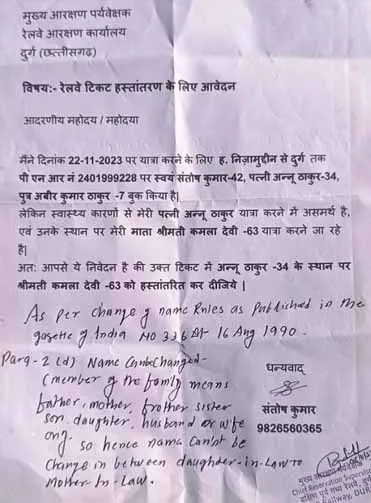 मुख्य आरक्षण पर्यवेक्षक
रेलवे आरक्षण कार्यालय
दुर्ग (छत्तीसगढ़)
विषय:- रेलवे टिकट हस्तांतरण के लिए आवेदन
आदरणीय महोदय / महोदया
मैंने दिनांक 22-11-2023 पर यात्रा करने के लिए ह. निज़ामुद्दीन से दुर्ग तक
पी एन आर नं 2401999228 पर स्वयं संतोष कुमार-42, पत्नी अन्नू ठाकुर-34,
पुत्र अबीर कुमार ठाकुर -7 बुक किया है|
लेकिन स्वास्थ्य कारणों से मेरी पत्नी अन्नू ठाकुर यात्रा करने में असमर्थ है,
एवं उनके स्थान पर मेरी माता श्रीमती कमला देवी -63 यात्रा करने जा रहे
है|
अतः आपसे ये निवेदन है की उक्त टिकट में अन्नू ठाकुर -34 के स्थान पर
श्रीमती कमला देवी -63 को हस्तांतरित कर दीजिये |
As per change of name Rules as Published in the
gazette of India NO 336 Dt 16 Aug 1990.
Para-2 (d) Name Changed-
(member of the family means
father, mother, brother sister
son, daughter, husband or wife
only. so hence name Can't be
Change in between daughter-in-Law to
Mother-In-Law.
धन्यवाद्
संतोष कुमार
9826560365
Chief Reservation Supervisor
Railway, DUR